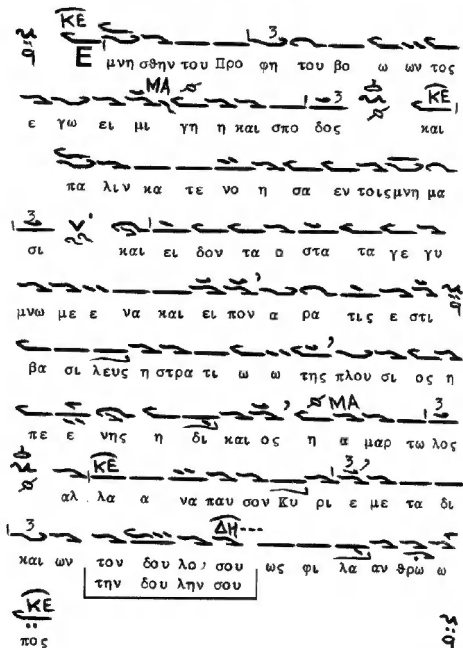 ΚΕ 3
Ε μνη σθην του Προ φη του βο ω ων τος
ΜΑ 3 ΚΕ
ε γω ει μι γη η και σπο δος και
πα λιν κα τε νο η σα εν τοις μνη μα
3
σι και ει δον τα ο στα τα γε γυ
μνω με ε να και ει πον α ρα τις ε στι
βα σι λευς η στρα τι ω ω της πλου σι ος η
ΜΑ 3
πε ε νης η δι και ος η α μαρ τω λος
ΚΕ 3
αλ λα α να παυ σον Κυ ρι ε με τα δι
3 ΔΗ
και ων τον δου λο, σου ως φι λα αν θρω ω
την δου λην σου
ΚΕ
πος